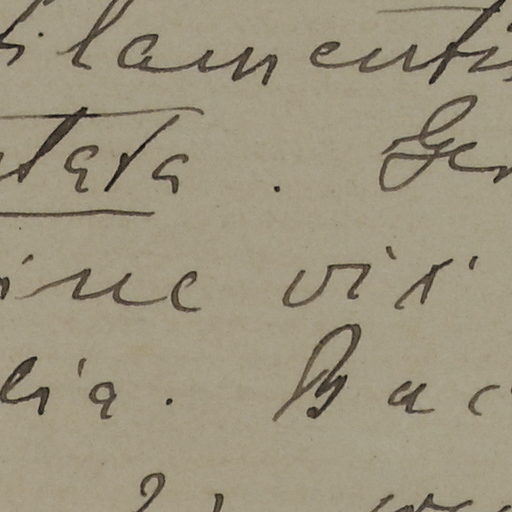 filamentis
tata. Ger
ine vix
lia. Bac